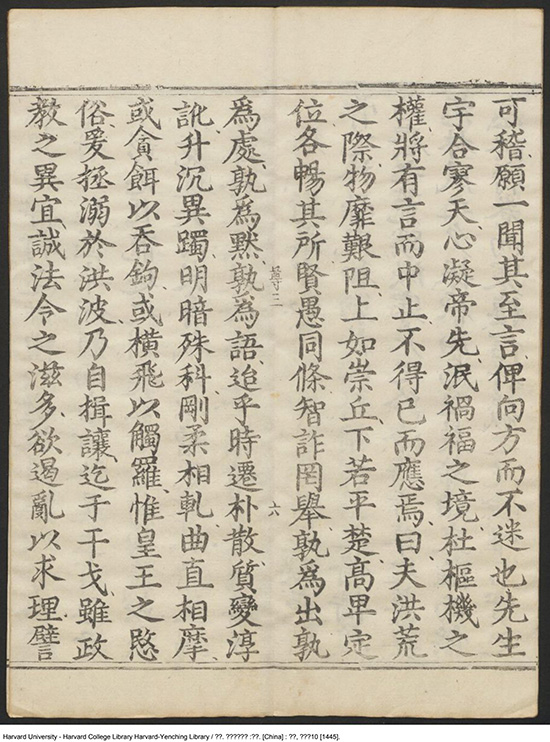 可稽願一聞其至言俾向方而不迷也先生
宇合寥天心凝帝先泯禍福之境杜樞機之
權將有言而中止不得已而應焉曰夫洪荒
之際物靡艱阻上如崇丘下若平楚高卑定
位各暢其所賢愚同條智詐罔舉孰為出孰
三
六
為處孰為黙孰為語迨乎時遷朴散質變淳
訛升沉異躅明暗殊科剛柔相軋曲直相摩
或貪餌以吞鉤或橫飛以觸羅惟皇王之愍
俗爰拯溺於洪波乃自揖讓迄于干戈雖政
教之異宜誠法令之滋多欲遏亂以求理譬
Harvard University - Harvard College Library Harvard-Yenching Library / ??. ?????? :??. [China] : ??, ???10 [1445].